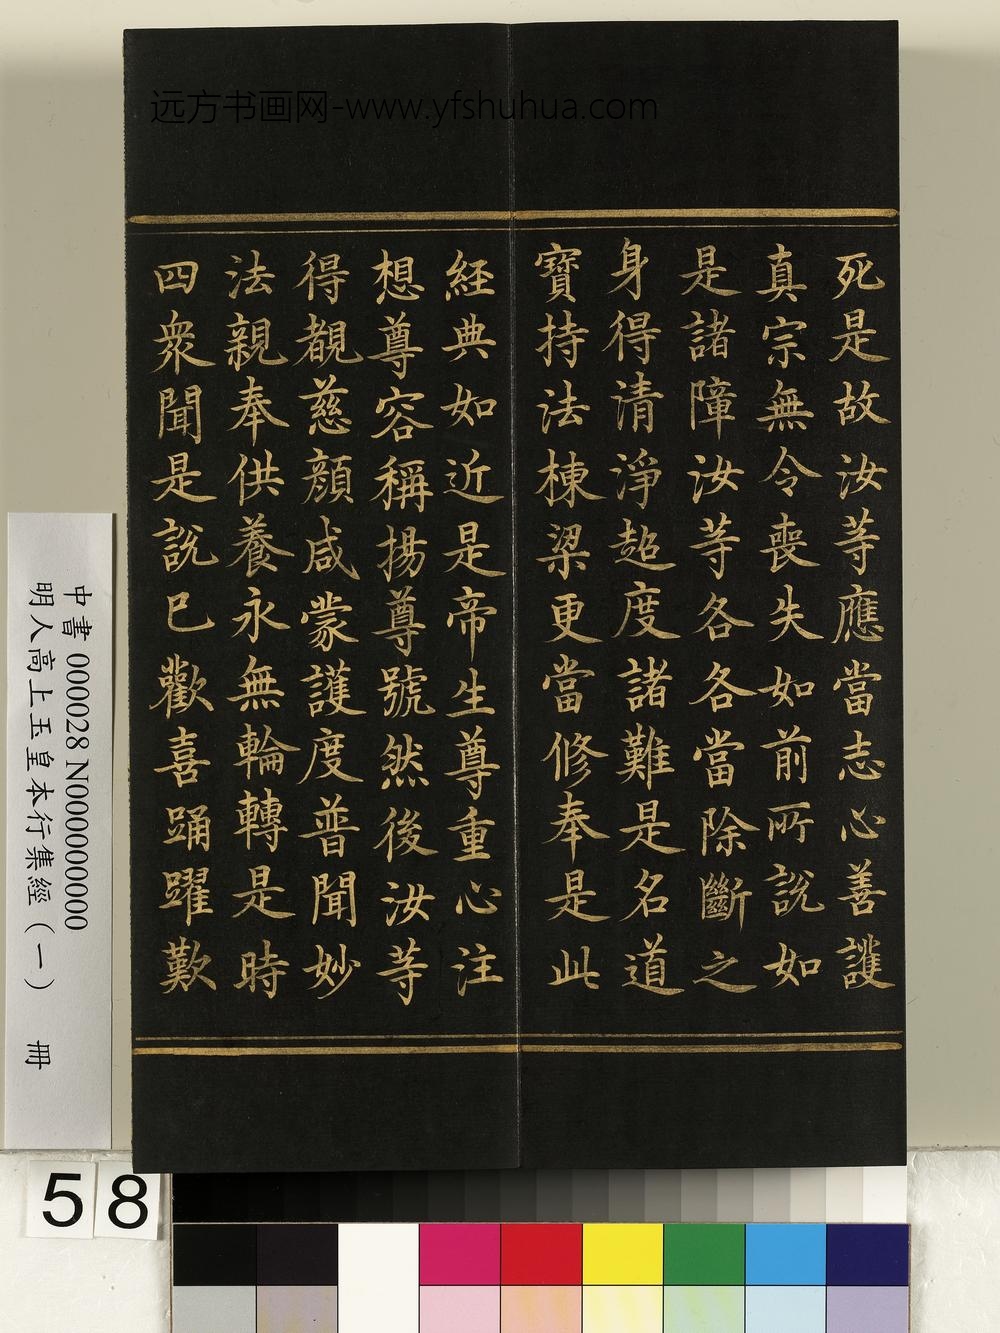 远方书画网-www.yfshuhua.com
死是故汝等應當志心善護
真宗無令喪失如前所說如
是諸障汝等各各當除斷之
身得清淨超度諸難是名道
寶持法棟梁更當修奉是此
經典如近是帝生尊重心注
想尊容稱揚尊號然後汝等
得覩慈顏咸蒙護度普聞妙
法親奉供養永無輪轉是時
四衆聞是說已歡喜踊躍歎
中書 000028 N000000000
明人高上玉皇本行集經(一) 冊
58